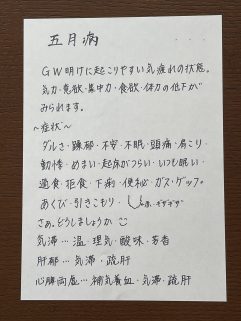 五月病
GW明けに起こりやすい気疲れの状態。
気力・意欲・集中力・食欲・体力の低下が
みられます。
〜症状〜
ダルさ・躁鬱・不安・不眠・頭痛・肩こり・
動悸・めまい・起床がつらい・いつも眠い・
過食・拒食・下痢・便秘・ガス・ゲップ。
あくび・引きこもり・
さぁ。どうしましょうか
気滞…温・理気・酸味・芳香
肝郁…気滞・疏肝
心脾両虚…補気養血・気滞・疏肝